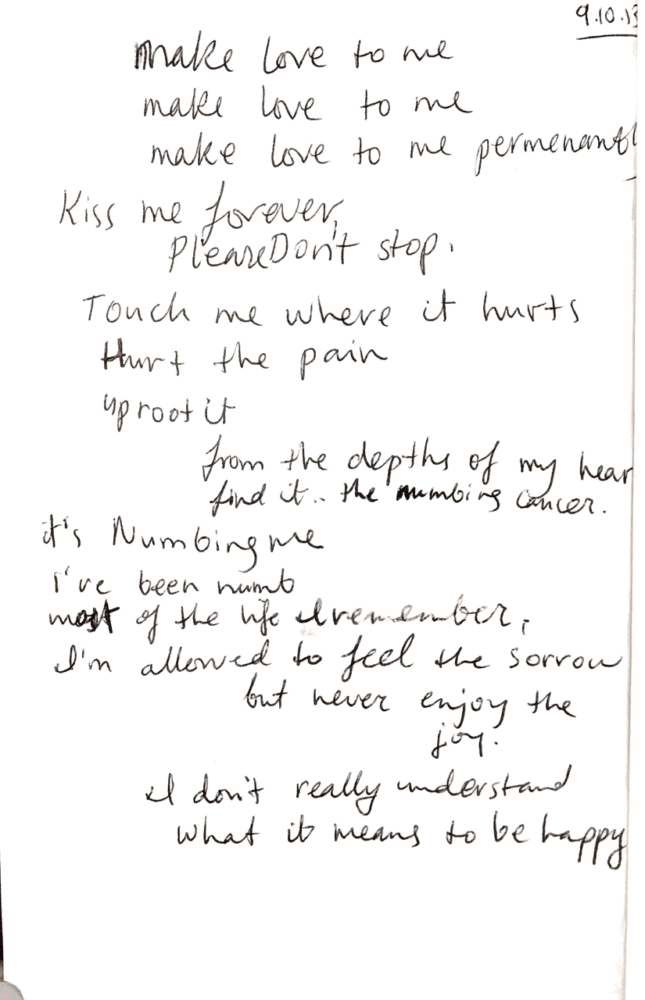 9.10.13
make love to me
make love to me
make love to me permenantly
Kiss me forever,
Please Don't stop.
Touch me where it hurts
Hurt the pain
uproot it
from the depths of my hear
find it.. the numbing cancer.
it's Numbing me
i've been numb
most of the life I remember,
I'm allowed to feel the sorrow
but never enjoy the
joy.
I don't really understand
what it means to be happy